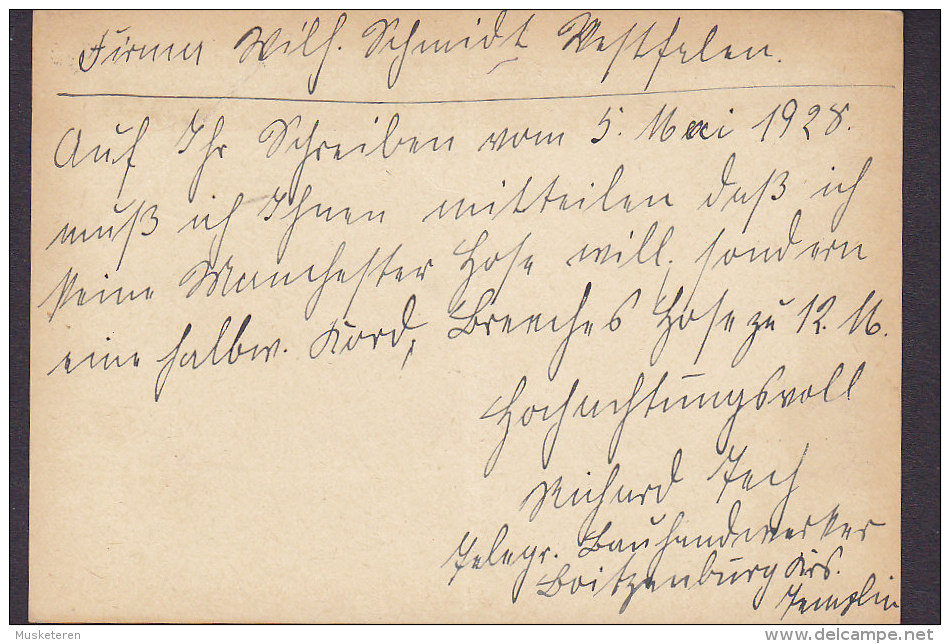 Firma Wilh. Schmidt Westfalen.
Auf Ihr Schreiben vom 5. Mai 1928.
muß ich Ihnen mitteilen daß ich
keine Manchester Hose will, sondern
eine halbw. Kord, Breeches Hose zu 12. M.
Hochachtungsvoll
Richard Jech
Telegr. Bauhandwerker
Boitzenburg Krs.
Templin
Musketeren
http://www.delcampe.net